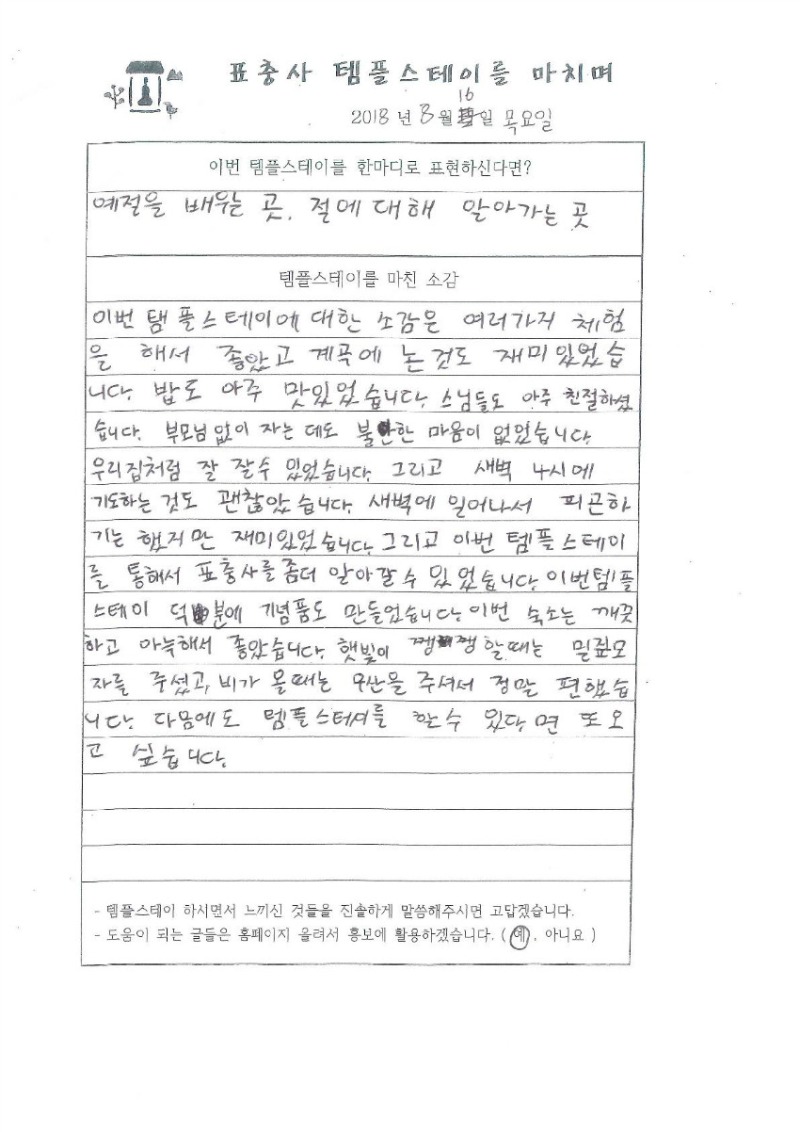 표충사 템플스테이를 마치며
2018년 8월 16일 목요일
이번 템플스테이를 한마디로 표현하신다면?
예절을 배우는 곳, 절에대해 알아가는 곳
템플스테이를 마친 소감
이번 템플스테이에 대한 소감은 여러가지 체험
을 해서 좋았고 계곡에 논것도 재미있었습
니다. 밥도 아주 맛있었습니다. 스님들도 아주 친절하셨
습니다. 부모님없이 자는 데도 불안한 마음이 없었습니다
우리집처럼 잘 잘수 있었습니다. 그리고 새벽 4시에
기도하는 것도 괜찮았습니다. 새벽에 일어나서 피곤하
기는 했지만 재미있었습니다. 그리고 이번 템플스테이
를 통해서 표충사를 좀더 알아갈 수 있었습니다. 이번템플
스테이 덕분에 기념품도 만들었습니다. 이번 숙소는 깨끗
하고 아늑해서 좋았습니다. 햇빛이 쨍쨍할때는 밀짚모
자를 주셨고, 비가 올때는 우산을 주셔서 정말 편했습
니다. 다음에도 템플스테이를 할수 있다면 또 오
고 싶습니다.
- 템플스테이 하시면서 느끼신 것들을 진솔하게 말씀해주시면 고답겠습니다.
- 도움이 되는 글들은 홈페이지 올려서 홍보에 활용하겠습니다. ( 예, 아니요 )